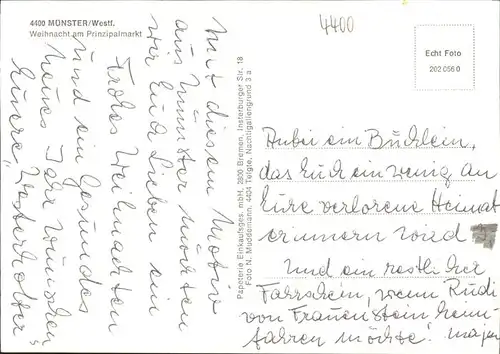 4400 MÜNSTER/Westf.
Weihnacht am Prinzipalmarkt
4400
Echt Foto
202 056 0
Mit diesem Motiv
aus Münster möchten
wir Euch Lieben ein
Frohes Weihnachten
und ein Gesundes
neues Jahr wünschen
Eure "Westerholter"
Papeterie Einkaufsges. mbH, 2800 Bremen, Insterburger Str. 18
Foto N. Muddemann, 4404 Telgte, Nachtigallengrund 3 a
Anbei ein Büchlein,
das Euch ein wenig an
Eure verlorene Heimat
erinnern wird
Und ein restlicher
Fahrschein, wenn Rudi
von Frauenstein heim-
fahren möchte!